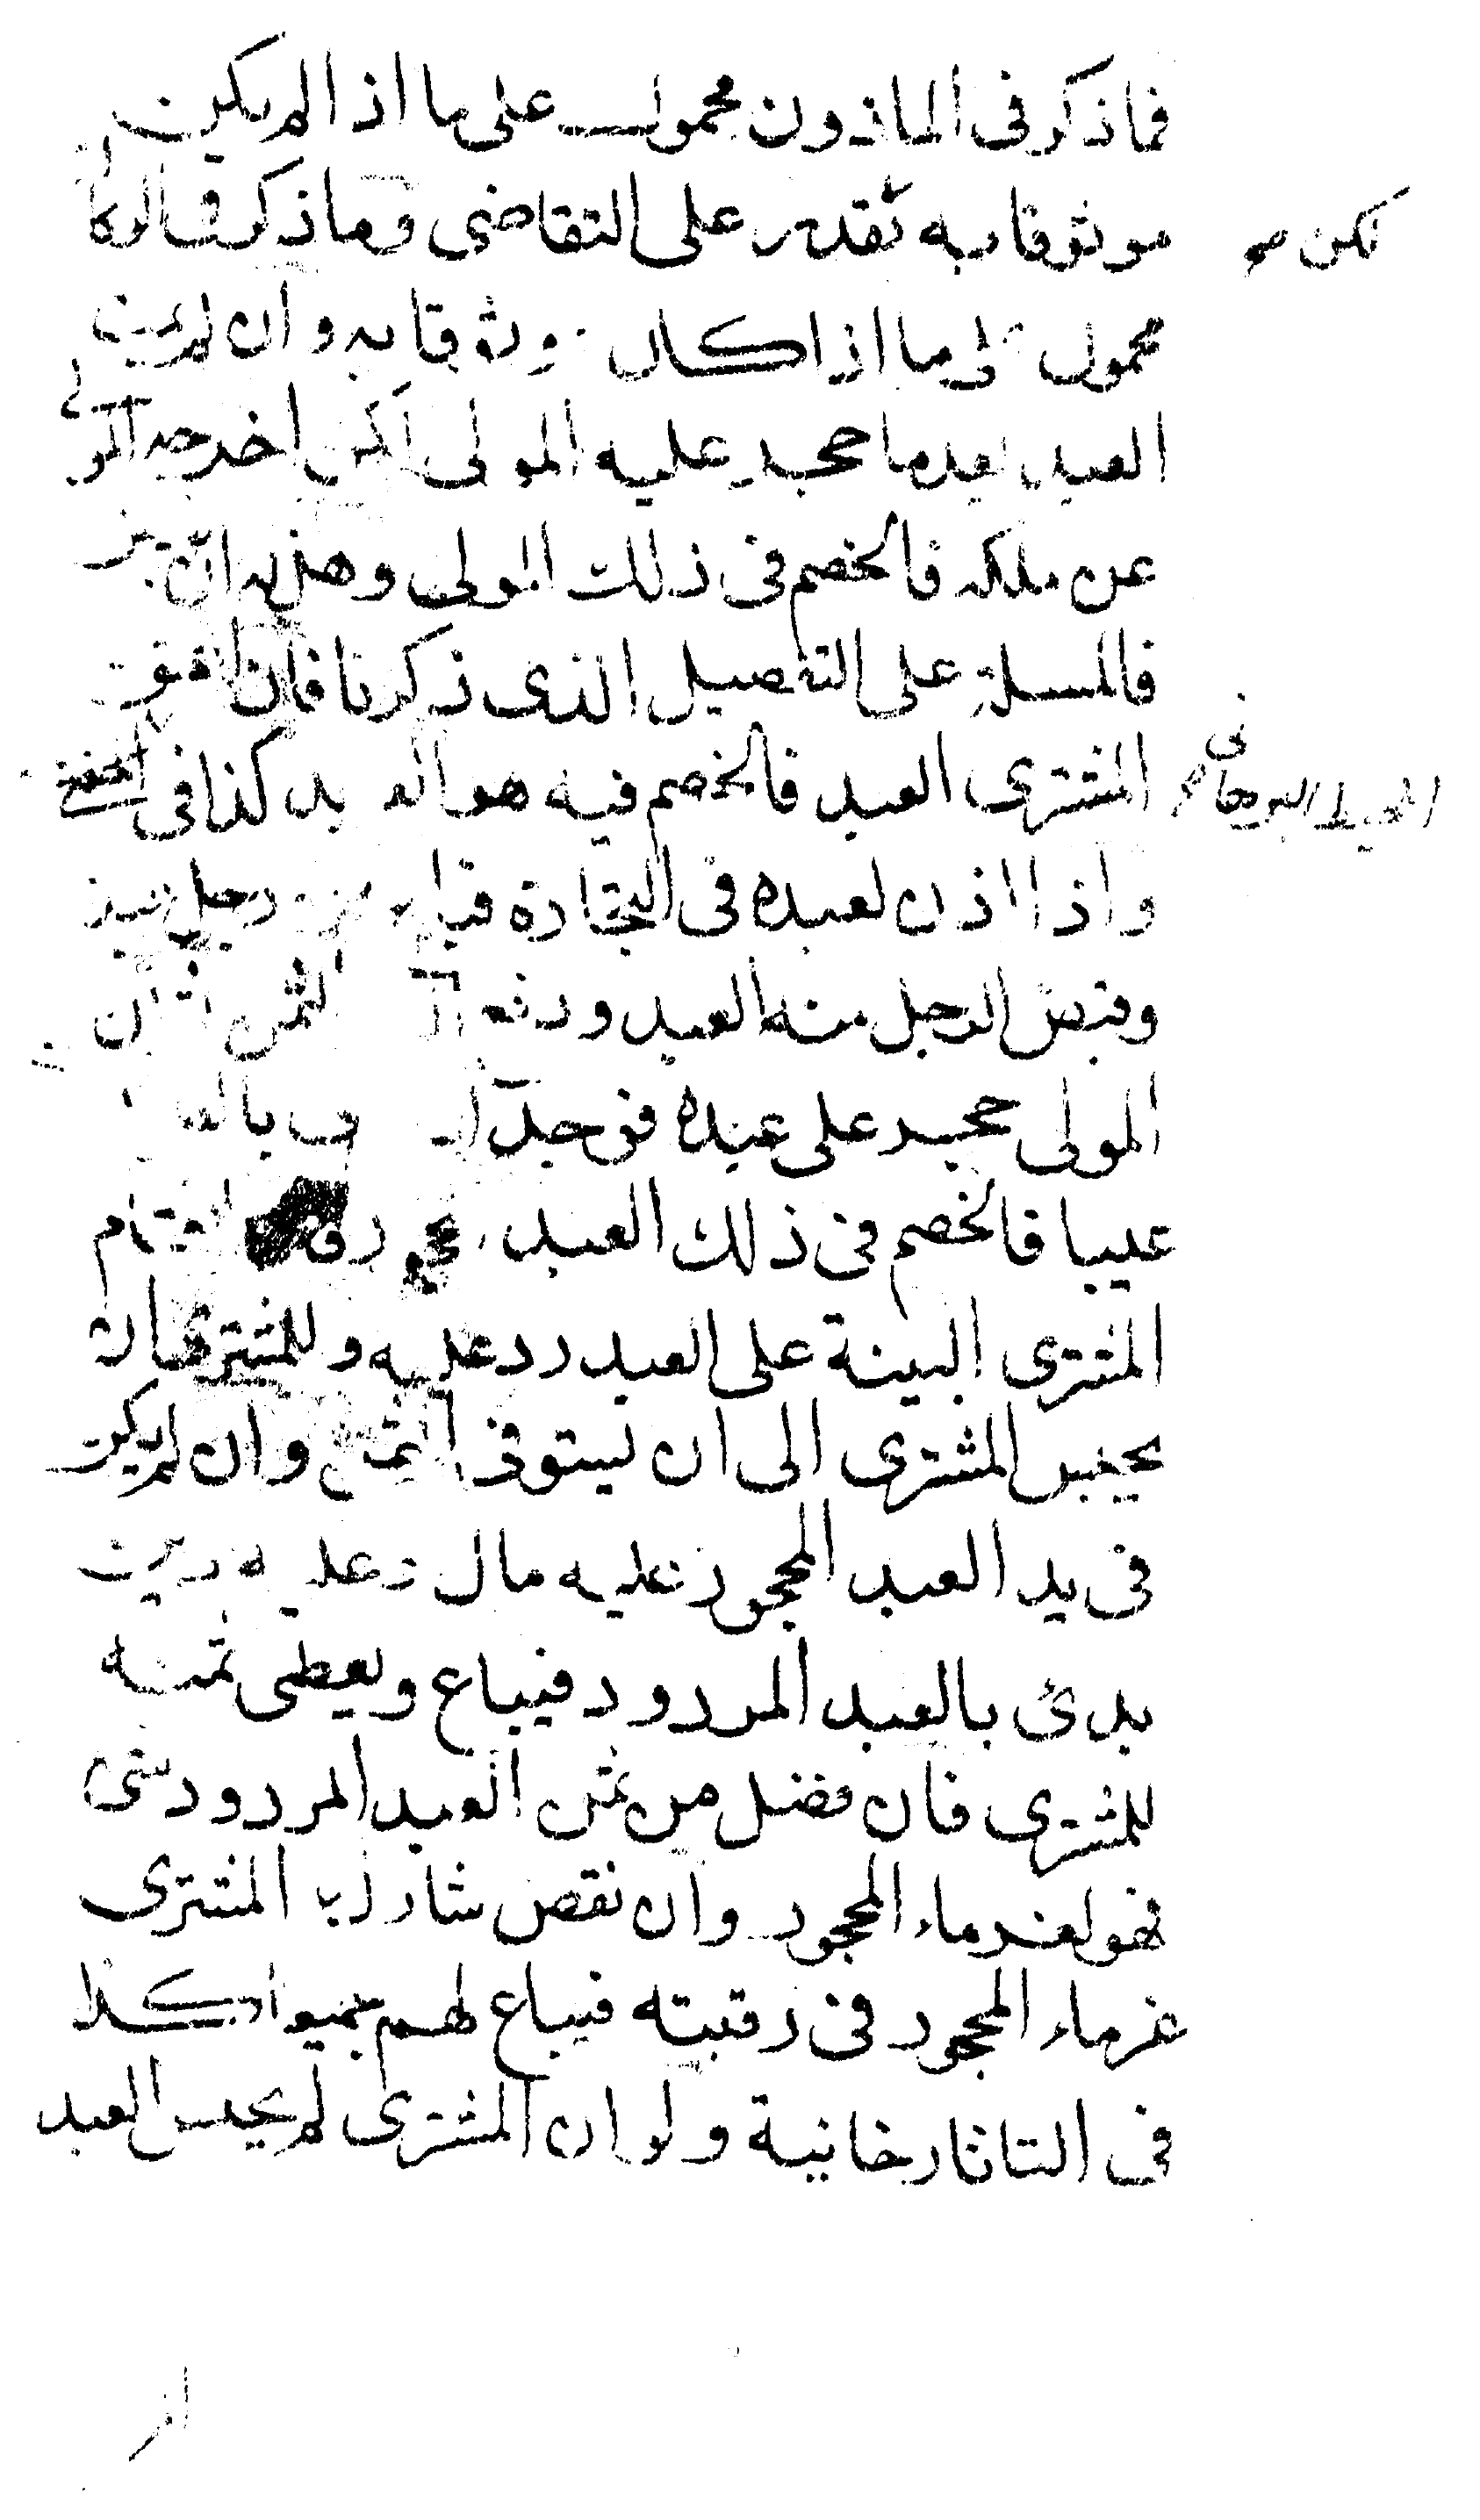 فماذكر فى الماذون محمول على ما اذا لم يكن
موثوقا به تقدر على التقاضى وماذكر فى الوكا
لكن صح
محمول على ما اذا كان موثوقا به وان لم يمت
العبد بعدما حجر عليه المولى لكن اخرجه المولى
عن ملكه فالخصم فى ذلك المولى وهذا ان
فالمسلة على التفصيل الذى ذكرنا فان اعتق
المشترى العبد فالخصم فيه هو العبد كذا فى
المحيط البرهانى
واذا اذن لعبده فى التجارة فباع من رجل
وقبض الرجل منه العبد ودفع الثمن ان
المولى حجر على عبده فوجد بالعبد
عيبا فالخصم فى ذلك العبد محجور اقام
المشترى البينة على العبد رد عليه وللمشترى ان
يحبس المشترى الى ان يستوفى الثمن وان لم يكن
فى يد العبد المحجور عليه مال وعليه دين
بدئ بالعبد المردود فيباع ويعطى ثمنه
للمشترى فان فضل من ثمن العبد المردود شئ
فهو لغرماء المحجور وان نقص شارك المشترى
غرماء المحجور فى رقبته فيباع لهم جميعا كذا
فى التاتارخانية ولو ان المشترى لم يجد العبد